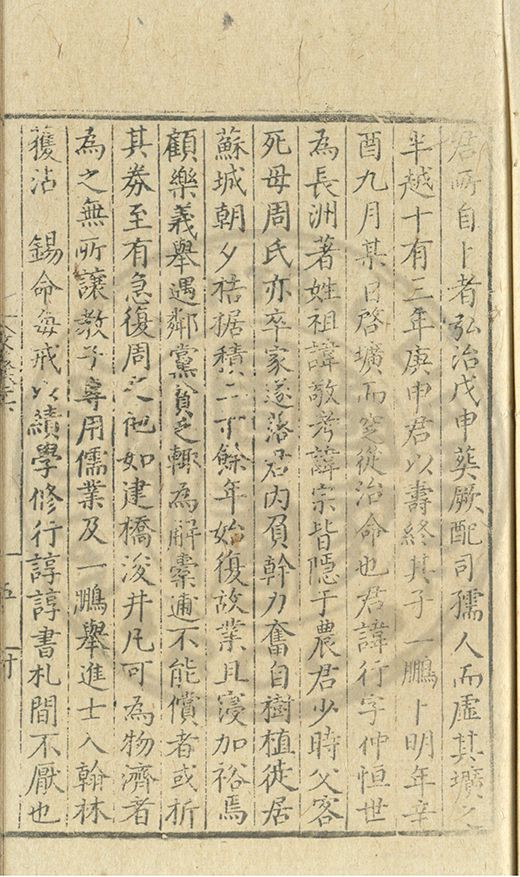 君所自卜者弘治戊申葬厥配司孺人而虛其壙之
半越十有三年庚申君以壽終其子一鵬卜明年辛
酉九月某日啓壙而窆從治命也君諱行字仲恒世
為長洲著姓祖諱敬考諱宗皆隱于農君少時父客
死母周氏亦卒家遂落君内負幹力奮自樹植徙居
蘇城朝夕捂据積二十餘年始復故業且寖加裕焉
顧樂義舉遇鄰黨貧乏輙為解橐逋不能償者或折
其券至有急復周之他如建橋浚井凡可為物濟者
為之無所讓教子專用儒業及一鵬舉進士入翰林
獲沾 錫命每戒以績學修行諄諄書札間不厭也
五